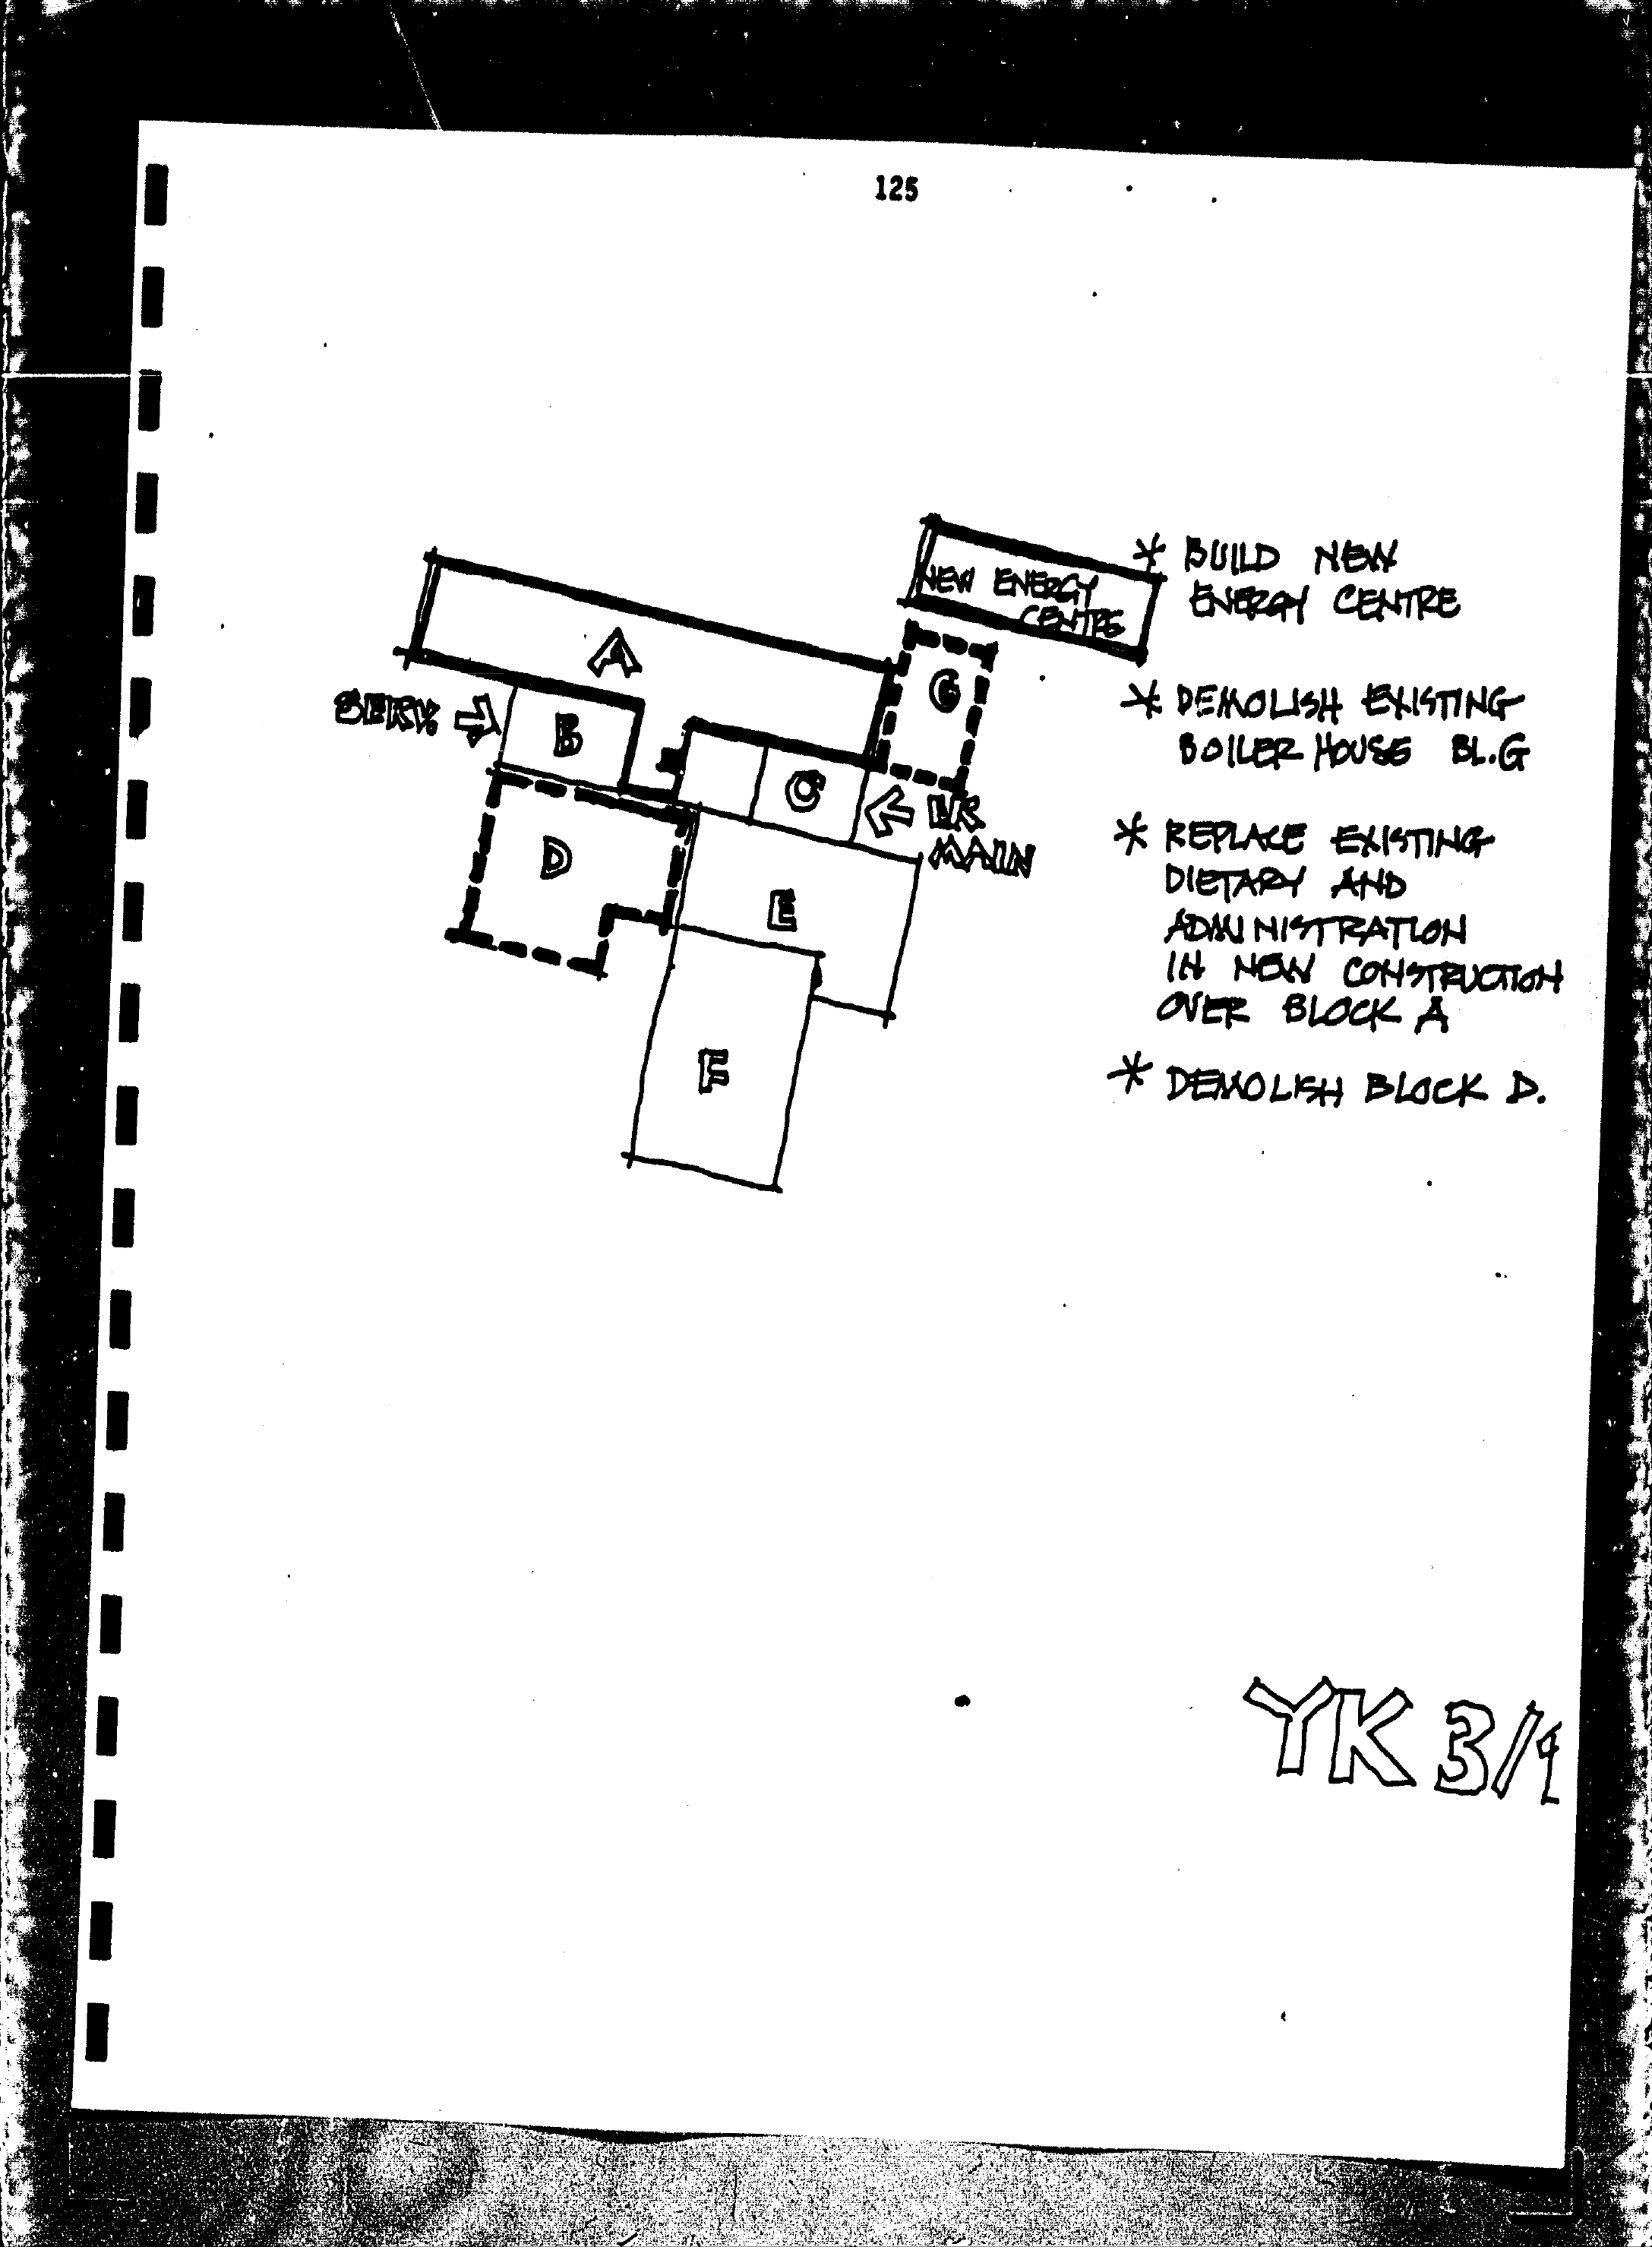 125
NEW ENERGY
CENTRE
A
G
SERV.
B
C
MAIN
D
E
F
* BUILD NEW
ENERGY CENTRE
* DEMOLISH EXISTING
BOILER HOUSE BL.G
* REPLACE EXISTING
DIETARY AND
ADMINISTRATION
IN NEW CONSTRUCTION
OVER BLOCK A
* DEMOLISH BLOCK D.
YK 3/9